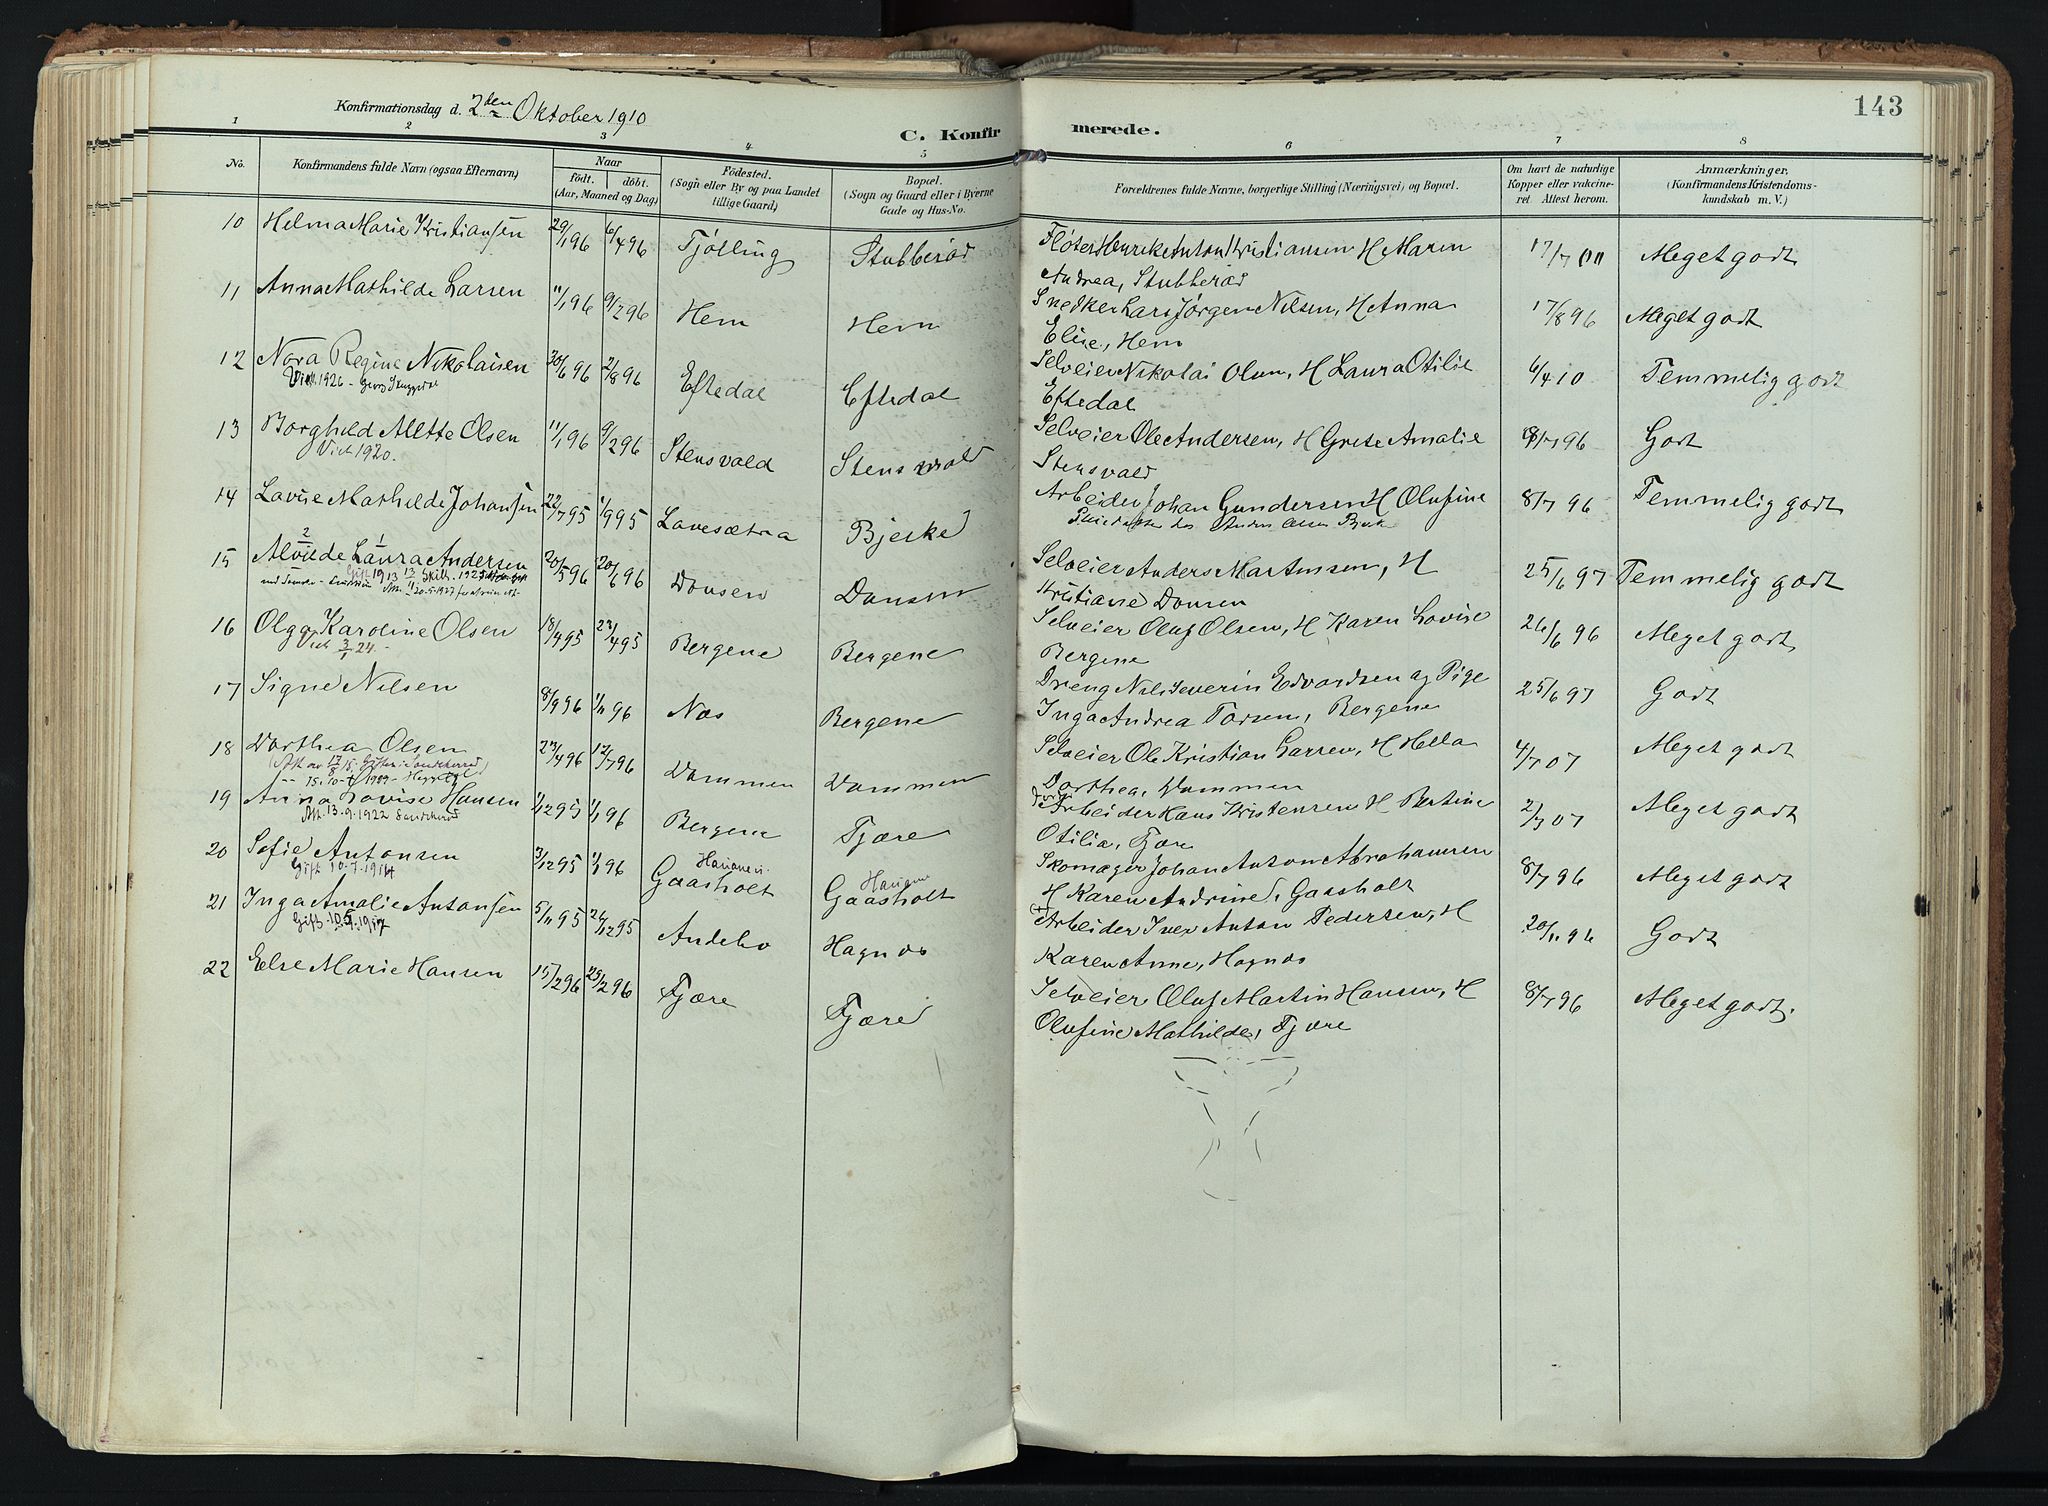 Konfirmationsdag d. 2den Oktober 1910
143
C. Konfirmerede.
1 2 3 4 5 6 7 8
No. Konfirmandens fulde Navn (ogsaa Efternavn). Naar født. døbt. (Aar, Maaned og Dag) Fødested. (Sogn eller By og paa Landet tillige Gaard) Bopæl. (Sogn og Gaard eller i Byerne Gade og Hus-No. Forældrenes fulde Navne, borgerlige Stilling (Næringsvei) og Bopæl. Om havt de naturlige Kopper eller vakcineret. Attest herom. Anmærkninger. (Konfirmandens Kristendomskundskab m. V.)
10 Helma Marie Kristiansen 29/1 96 6/4 96 Tjølling Stubberød Fløter Henrik Anton Kristiansen H Maren 17/7 00 Meget godt
Andrea, Stubberød
11 Anna Mathilde Larsen 11/1 96 9/2 96 Hem Hem Snedker Lars Jørgen Nilsen, H Anna 17/8 96 Meget godt
Elise, Hem
12 Nora Regine Nikolaisen 30/6 96 2/8 96 Eftedal Eftedal Selveier Nikolai Olsen, H Laura Otilie 6/4 10 Temmelig godt
Viet 1926 - Georg
Eftedal
13 Borghild Alette Olsen 11/1 96 9/2 96 Stensvald Stensvald Selveier Ole Andersen, H Grete Amalie 8/7 96 Godt
Viet 1920.
Stensvald
14 Lavise Mathilde Johansen 22/7 95 1/9 95 Lavesætra Bjerke Arbeider Johan Gundersen H Olufine 8/7 96 Temmelig godt
Anders Olsen Bjerke
2 1
15 Alvilde Laura Andersen 20/5 96 20/6 96 Donsen Donsen Selveier Anders Martinsen, H 25/6 97 Temmelig godt
Gift 1913
20-5-1927
Kristiane Donsen
16 Olga Karoline Olsen 18/4 95 23/4 95 Bergene Bergene Selveier Oluf Olsen, H Karen Lovise 26/6 96 Meget godt
Viet 3/1 24.-
Bergene
17 Signe Nilsen 8/9 96 1/11 96 Nes Bergene Dreng Nils Severin Edvardsen og Pige 25/6 97 Godt
Inga Andrea Torsen, Bergene
18 Dorthea Olsen 23/4 96 12/7 96 Dammen Dammen Selveier Ole Kristian Larsen, H Hella 4/7 07 Meget godt
(Att. av 17/8 15, Gifteri Sandeherred)
Dorthea, Dammen
19 Anna Lovise Hansen 1/12 95 1/1 96 Bergene Tjære Arbeider Hans Kristensen H Bertine 2/7 07 Meget godt
Att. 13-9-1922 Sandeherred
Otilia, Tjære
20 Sofie Antonsen 3/12 95 1/1 96 Gaasholt Gaasholt Skomager Johan Anton Abrahamsen 8/7 96 Meget godt
Gift 10-7-1914
H Karen Andrine, Gaasholt
21 Inga Amalie Antonsen 5/11 95 26/12 95 Andebo Hagnæs Arbeider Iver Anton Pedersen, H 20/11 96 Godt
Karen Anne, Hagnæs
22 Else Marie Hansen 15/2 96 29/2 96 Tjære Tjære Selveier Oluf Martin Hansen, H 8/7 96 Meget godt.
Olufine Mathilde, Tjære